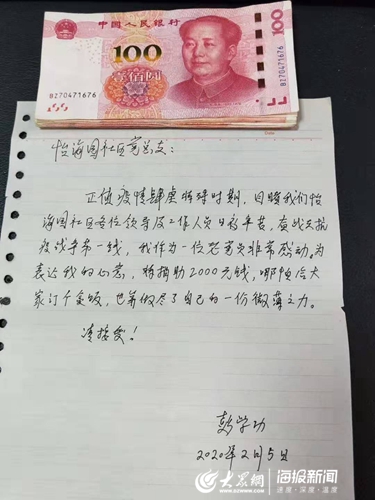 中国人民银行
100
100
壹佰圆
BZ70471676
BZ70471676
怡海园社区党总支：
正值疫情肆虐特殊时期，目睹我们怡
海园社区各位领导及工作人员日夜辛苦，奋战在抗
疫战争第一线，我作为一位老党员非常感动。为
表达我的心意，特捐助2000元钱，哪怕给大
家订个盒饭，也算做尽了自己的一份微薄之力。
请接受！
彭学功
2020年2月5日
大众网
www.dzwww.com
海报新闻
速度·深度·温度